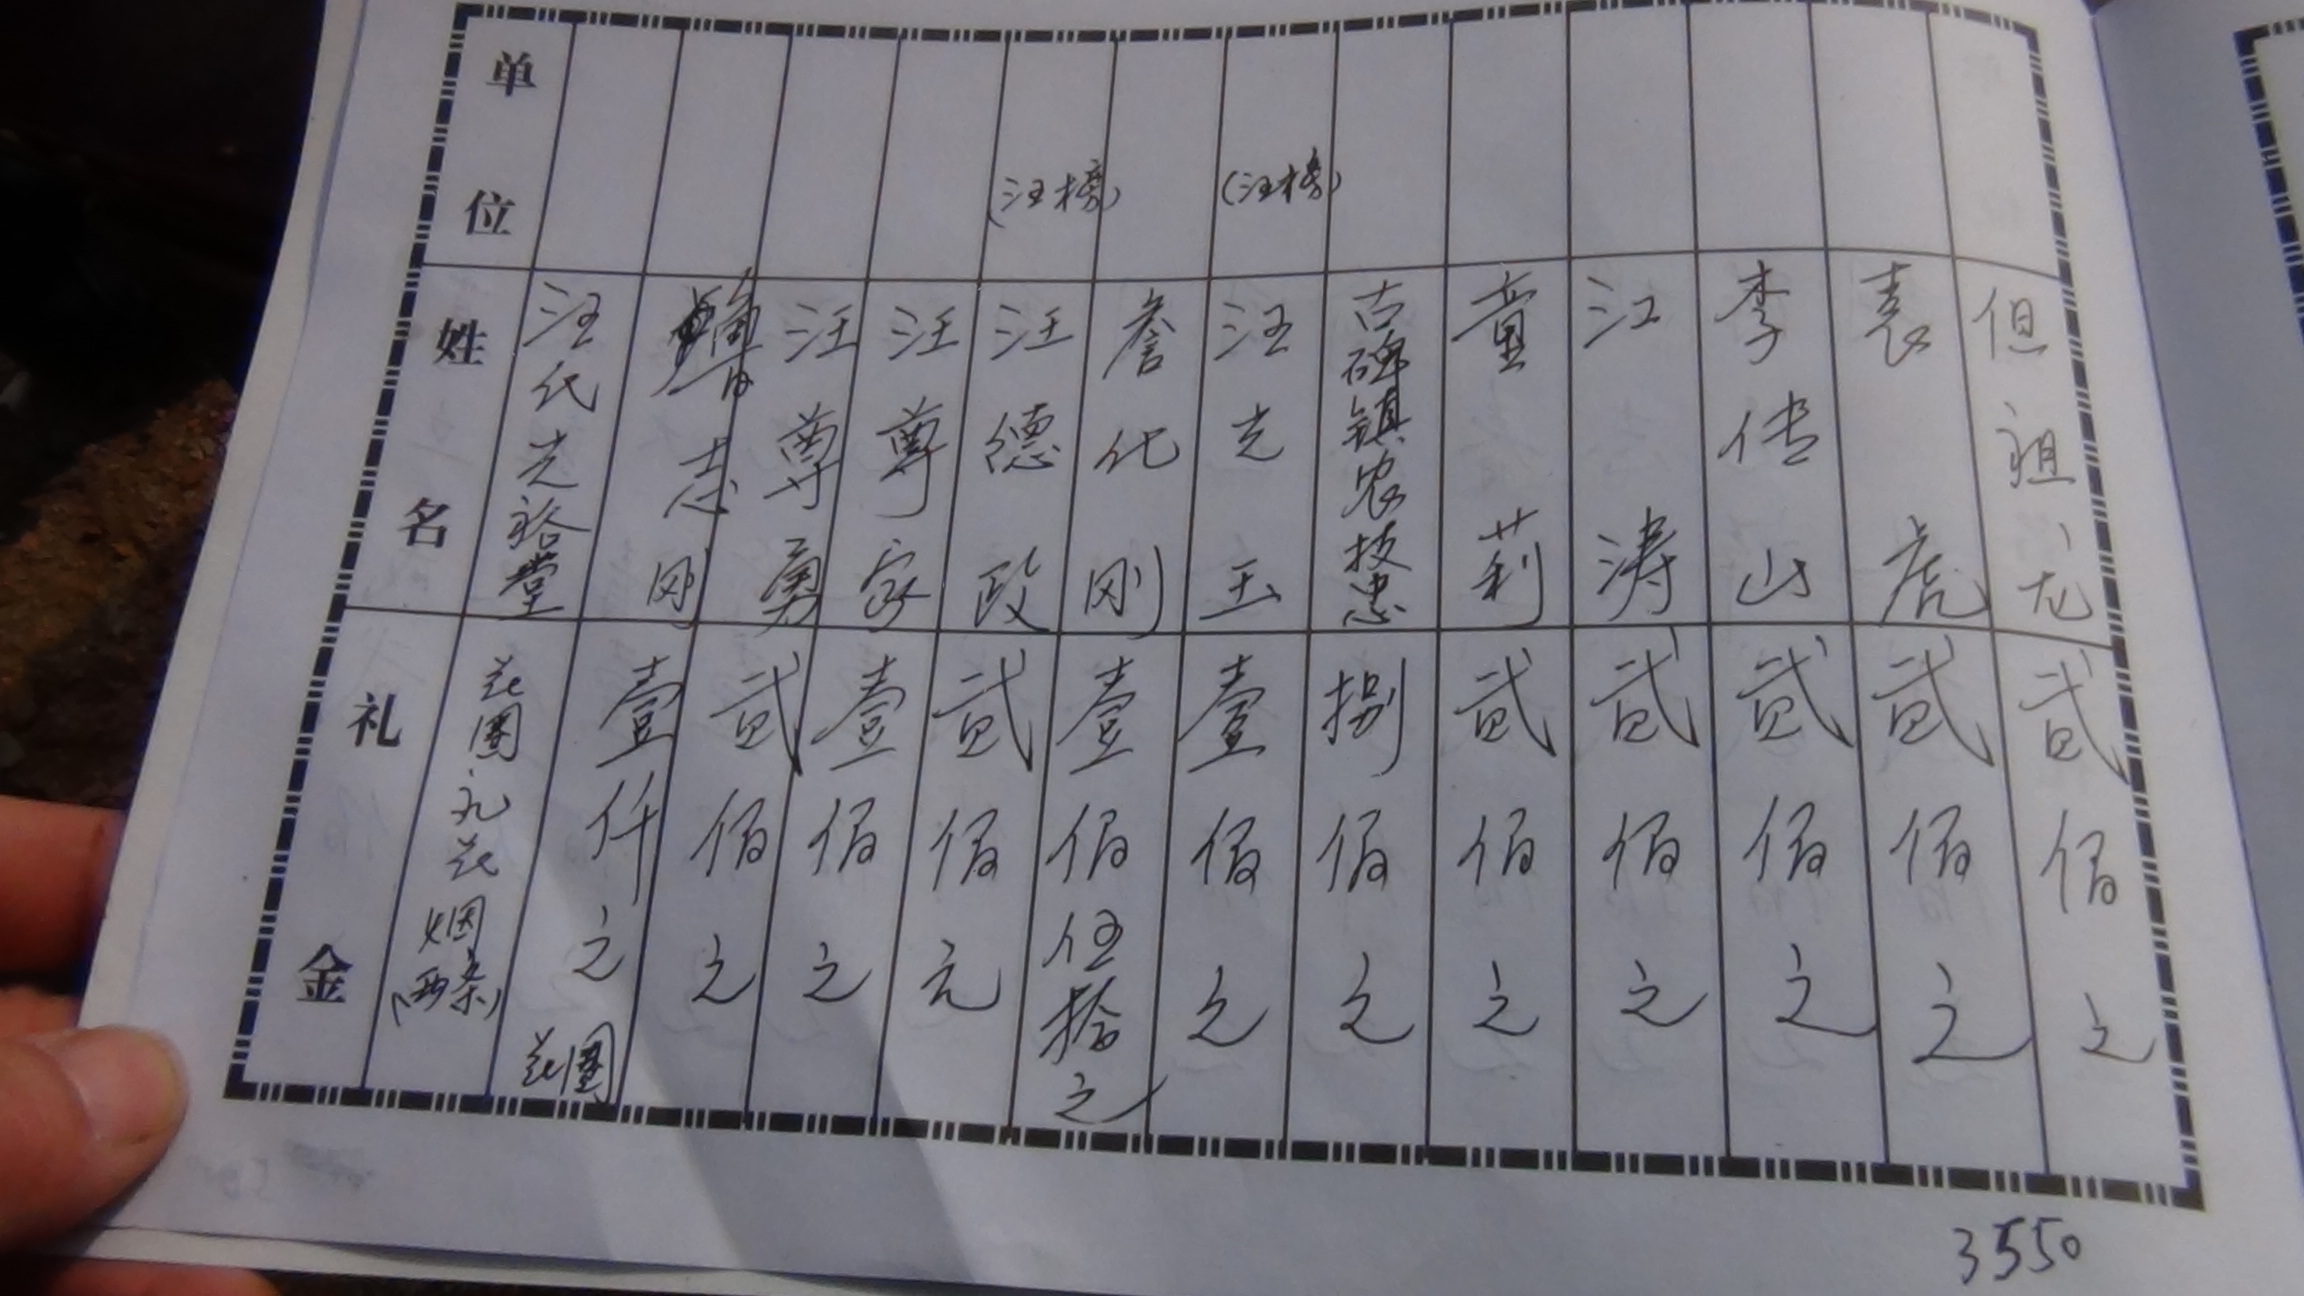 单位
姓名
礼金
汪代光裕堂
花圈礼花烟(两条)
志刚
壹仟元花圈
汪尊勇
贰佰元
汪尊家
壹佰元
(汪榜)
汪德政
贰佰元
詹化刚
壹佰伍拾元
(汪榜)
汪克玉
壹佰元
古碑镇农技
捌佰元
童莉
贰佰元
江涛
贰佰元
李传山
贰佰元
袁虎
贰佰元
但祖龙
贰佰元
3550